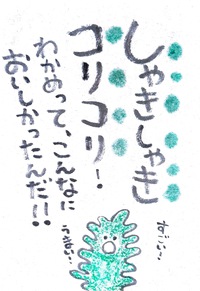 しゃきしゃき
コリコリ！
わかめって、こんなに
おいしかったんだ!!